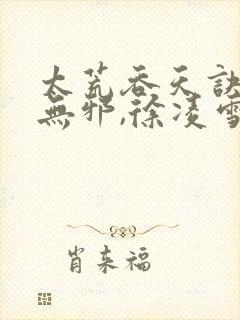 太荒吞天訣
無邪,徐凌雪
肖来福